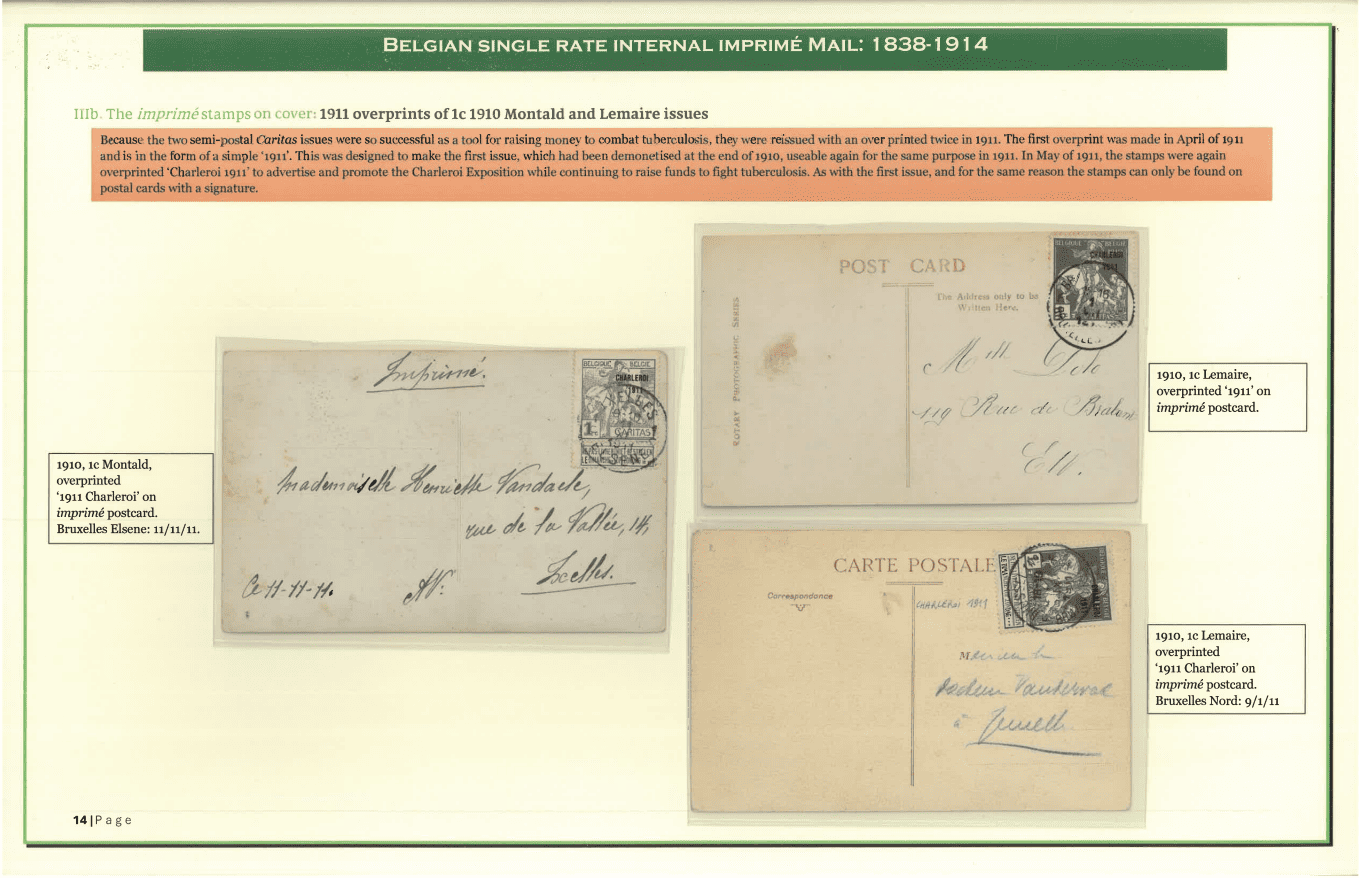 BELGIAN SINGLE RATE INTERNAL IMPRIMÉ MAIL: 1838-1914
IIIb. The imprimé stamps on cover: 1911 overprints of 1c 1910 Montald and Lemaire issues
Because the two semi-postal Caritas issues were so successful as a tool for raising money to combat tuberculosis, they were reissued with an over printed twice in 1911. The first overprint was made in April of 1911
and is in the form of a simple '1911'. This was designed to make the first issue, which had been demonetised at the end of 1910, useable again for the same purpose in 1911. In May of 1911, the stamps were again
overprinted 'Charleroi 1911' to advertise and promote the Charleroi Exposition while continuing to raise funds to fight tuberculosis. As with the first issue, and for the same reason the stamps can only be found on
postal cards with a signature.
1910, 1c Montald,
overprinted
'1911 Charleroi' on
imprimé postcard.
Bruxelles Elsene: 11/11/11.
Imprimé.
BELGIQUE BELGIE
CHARLEROI
1911
1c
CARITAS
Mademoiselle Henriette Vandaele,
rue de la Vallée, 14,
Ixelles.
Ce 11-11-11.
POST CARD
The Address only to be
Written Here.
ROTARY PHOTOGRAPHIC SERIES
BELGIQUE BELGIE
CHARLEROI
1911
Mlle
119 Rue de Brabant
E/V.
1910, 1c Lemaire,
overprinted '1911' on
imprimé postcard.
CARTE POSTALE
Correspondance
CHARLEROI 1911
à
1910, 1c Lemaire,
overprinted
'1911 Charleroi' on
imprimé postcard.
Bruxelles Nord: 9/1/11
14|Page